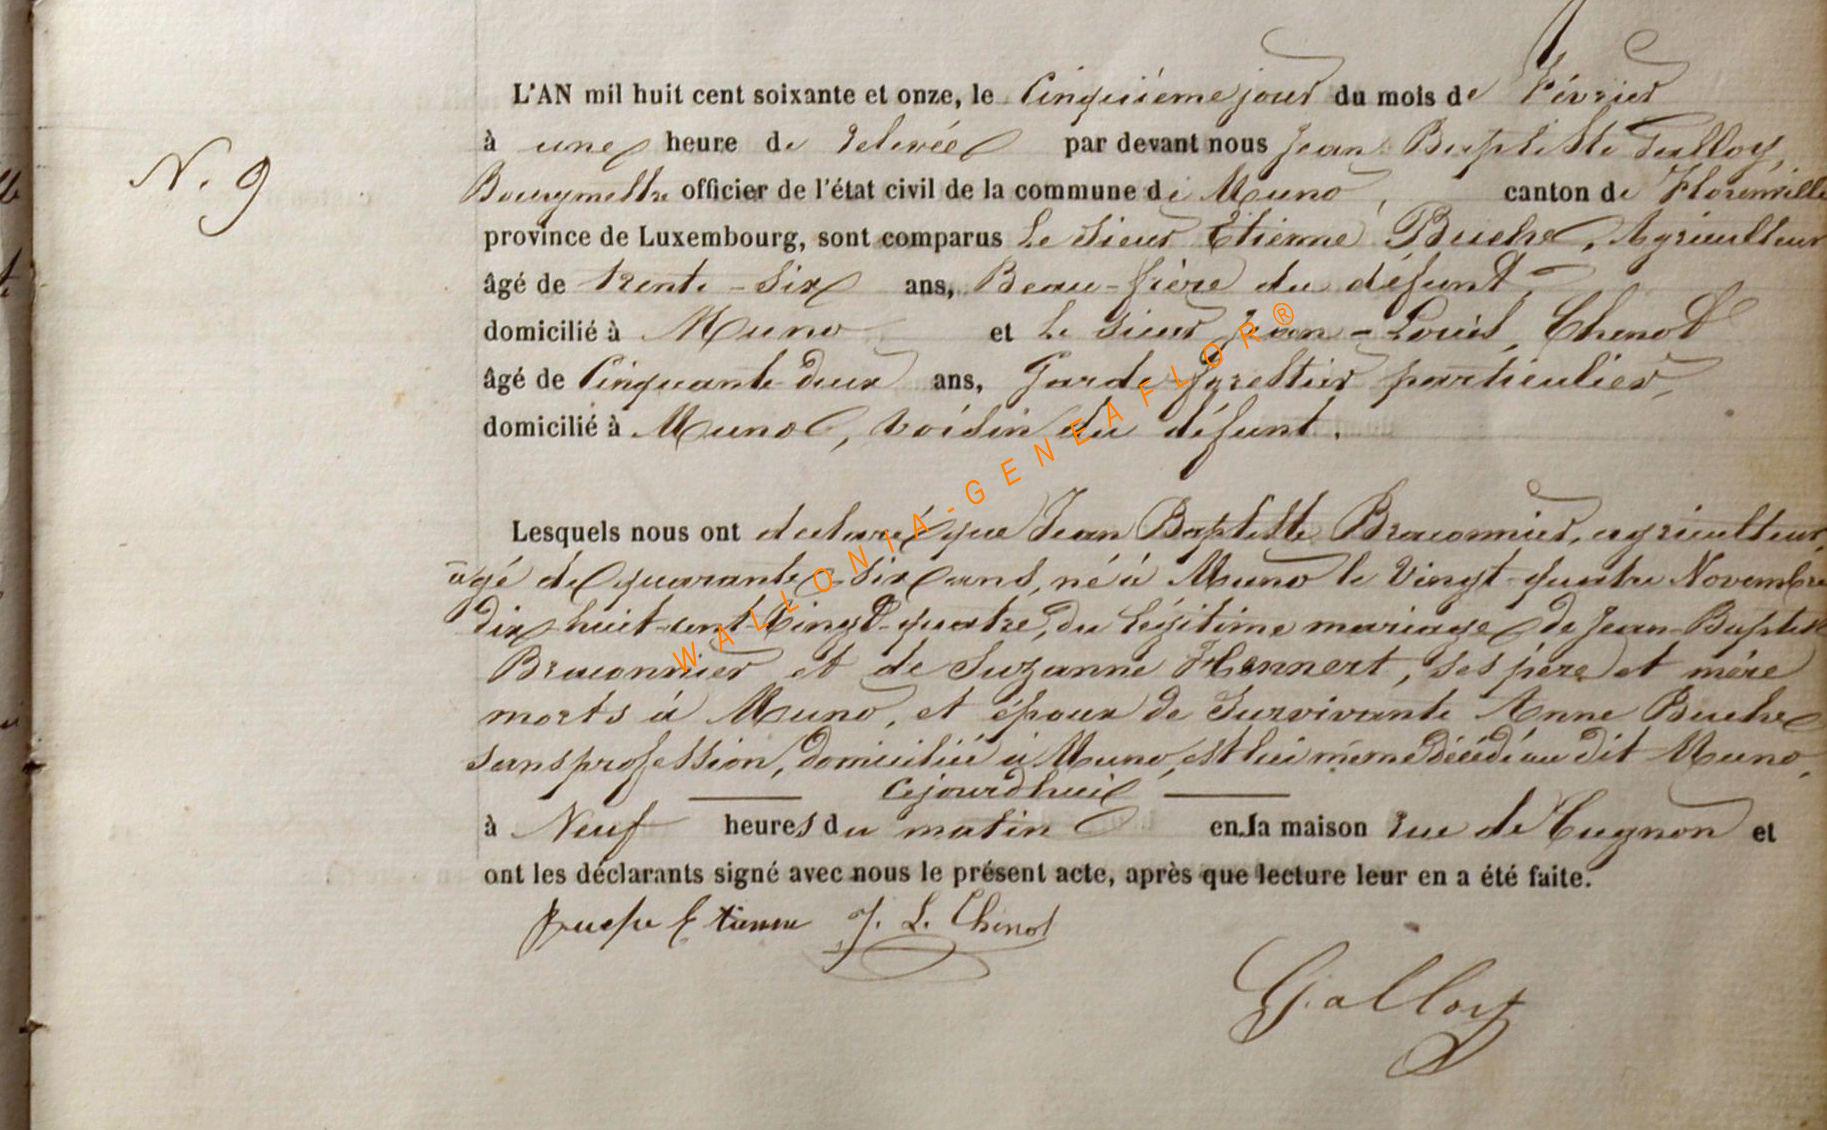 L'AN mil huit cent soixante et onze, le cinquième jour du mois de Février
N. 9
à une heure de relevée par devant nous Jean Baptiste Galloy,
Bourgmestre officier de l'état civil de la commune de Muno, canton de Florenville
province de Luxembourg, sont comparus Le Sieur Etienne Buche, Agriculteur
âgé de trente-six ans, Beau-frère du défunt,
domicilié à Muno et le Sieur Jean-Louis, Chenot
âgé de Cinquante-deux ans, Garde forestier particulier,
domicilié à Muno, voisin du défunt.
Lesquels nous ont declaré que Jean Baptiste Braconnier, agriculteur,
agé de quarante-six ans, né à Muno le Vingt-quatre Novembre
dix-huit-cent-Vingt-quatre, du légitime mariage de Jean-Baptiste
Braconnier et de Suzanne Hennert, ses père et mère
morts à Muno, et époux de Survivante Anne Buche
sans profession, domiciliée à Muno, est lui même décédé au dit Muno,
Cejourd'huit
à Neuf heures du matin en la maison rue de Cugnon et
ont les déclarants signé avec nous le présent acte, après que lecture leur en a été faite.
Buche Etienne J. L. Chenot
Galloy
WALLONIA-GENEAFLOR®